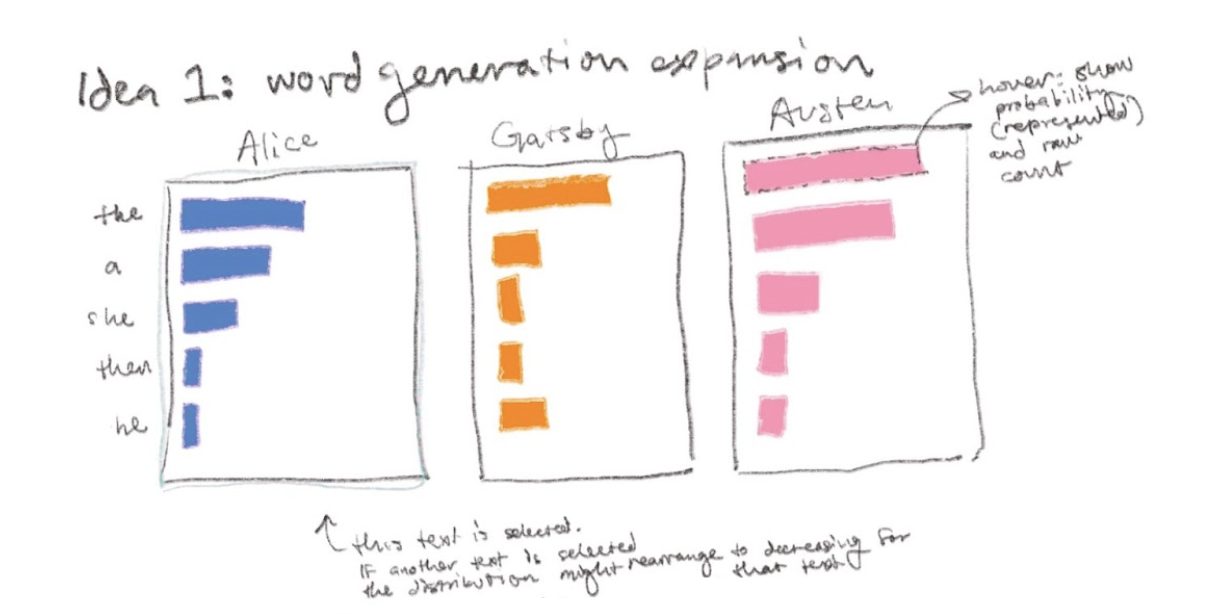 Idea 1: word generation expansion
Alice
Gatsby
Austen
hover: show
probability
(represented)
and raw
count
the
a
she
then
he
↑ this text is selected.
IF another text is selected
the distribution might rearrange to decreasing for
that text